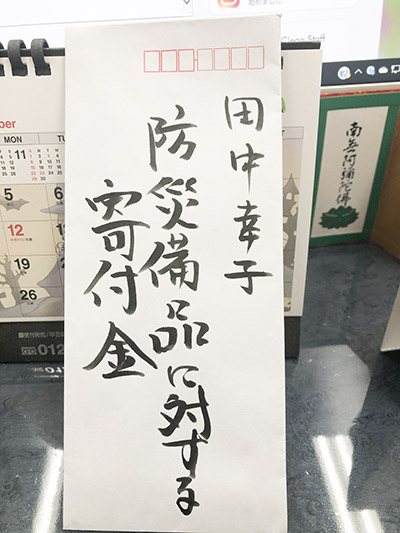 田中幸子
防災備品に対する
寄付金
南無阿彌陀佛
ber
MON
TU
11
5
12
19
26
012